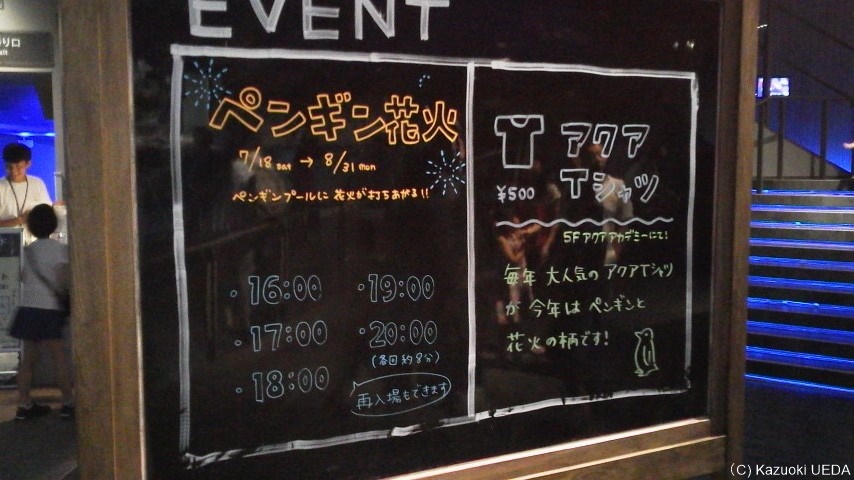 EVENT
ペンギン花火
7/18 sat → 8/31 mon
ペンギンプールに 花火が打ちあがる!!
・16:00
・17:00
・18:00
・19:00
・20:00
(各回約8分)
再入場もできます
アクア
Tシャツ
¥500
5F アクアアカデミーにて!
毎年 大人気の アクアTシャツ
が 今年は ペンギンと
花火の柄です!
り口
(C) Kazuoki UEDA